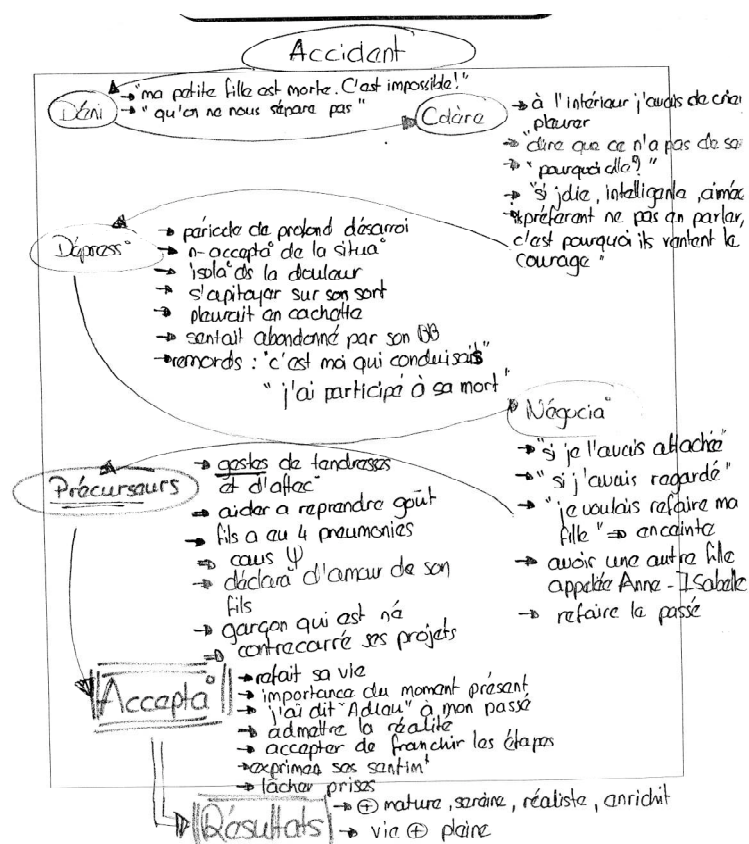 Accidant
Déni
→ "ma petite fille est morte. C'est impossible!"
→ "qu'on ne nous sépare pas"
Colère
→ à l'intérieur j'avais de crier
pleurer
→ dire que ce n'a pas de se
→ "pourquoi elle?"
→ "si jolie, intelligente, aimée
"préférant ne pas en parler,
c'est pourquoi ils vantent le
courage"
Dépress°
→ période de profond désarroi
→ n-accepta° de la situa°
→ isola° ds la douleur
→ s'apitoyer sur son sort
→ pleurait en cachette
→ sentait abandonné par son BB
→ remords : "c'est moi qui conduisais"
"j'ai participé à sa mort"
Négocia°
→ "si je l'avais attachée"
→ "si j'avais regardé"
→ "je voulais refaire ma
fille" ⇒ enceinte
→ avoir une autre fille
appelée Anne-Isabelle
→ refaire le passé
Précurseurs
→ gestes de tendresses
et d'affec°
→ aider a reprendre goût
→ fils a eu 4 pneumonies
⇒ caus Ψ
→ déclara° d'amour de son
fils
→ garçon qui est né
⇒ contrecarré ses projets
Accepta°
→ refait sa vie
→ importance du moment présent
→ j'ai dit "Adieu" à mon passé
→ admettre la réalité
→ accepter de franchir les étapes
→ exprimer ses sentimt
→ lâcher prises
Résultats
→ ⊕ mature, sereine, réaliste, enrichit
→ vie ⊕ pleine